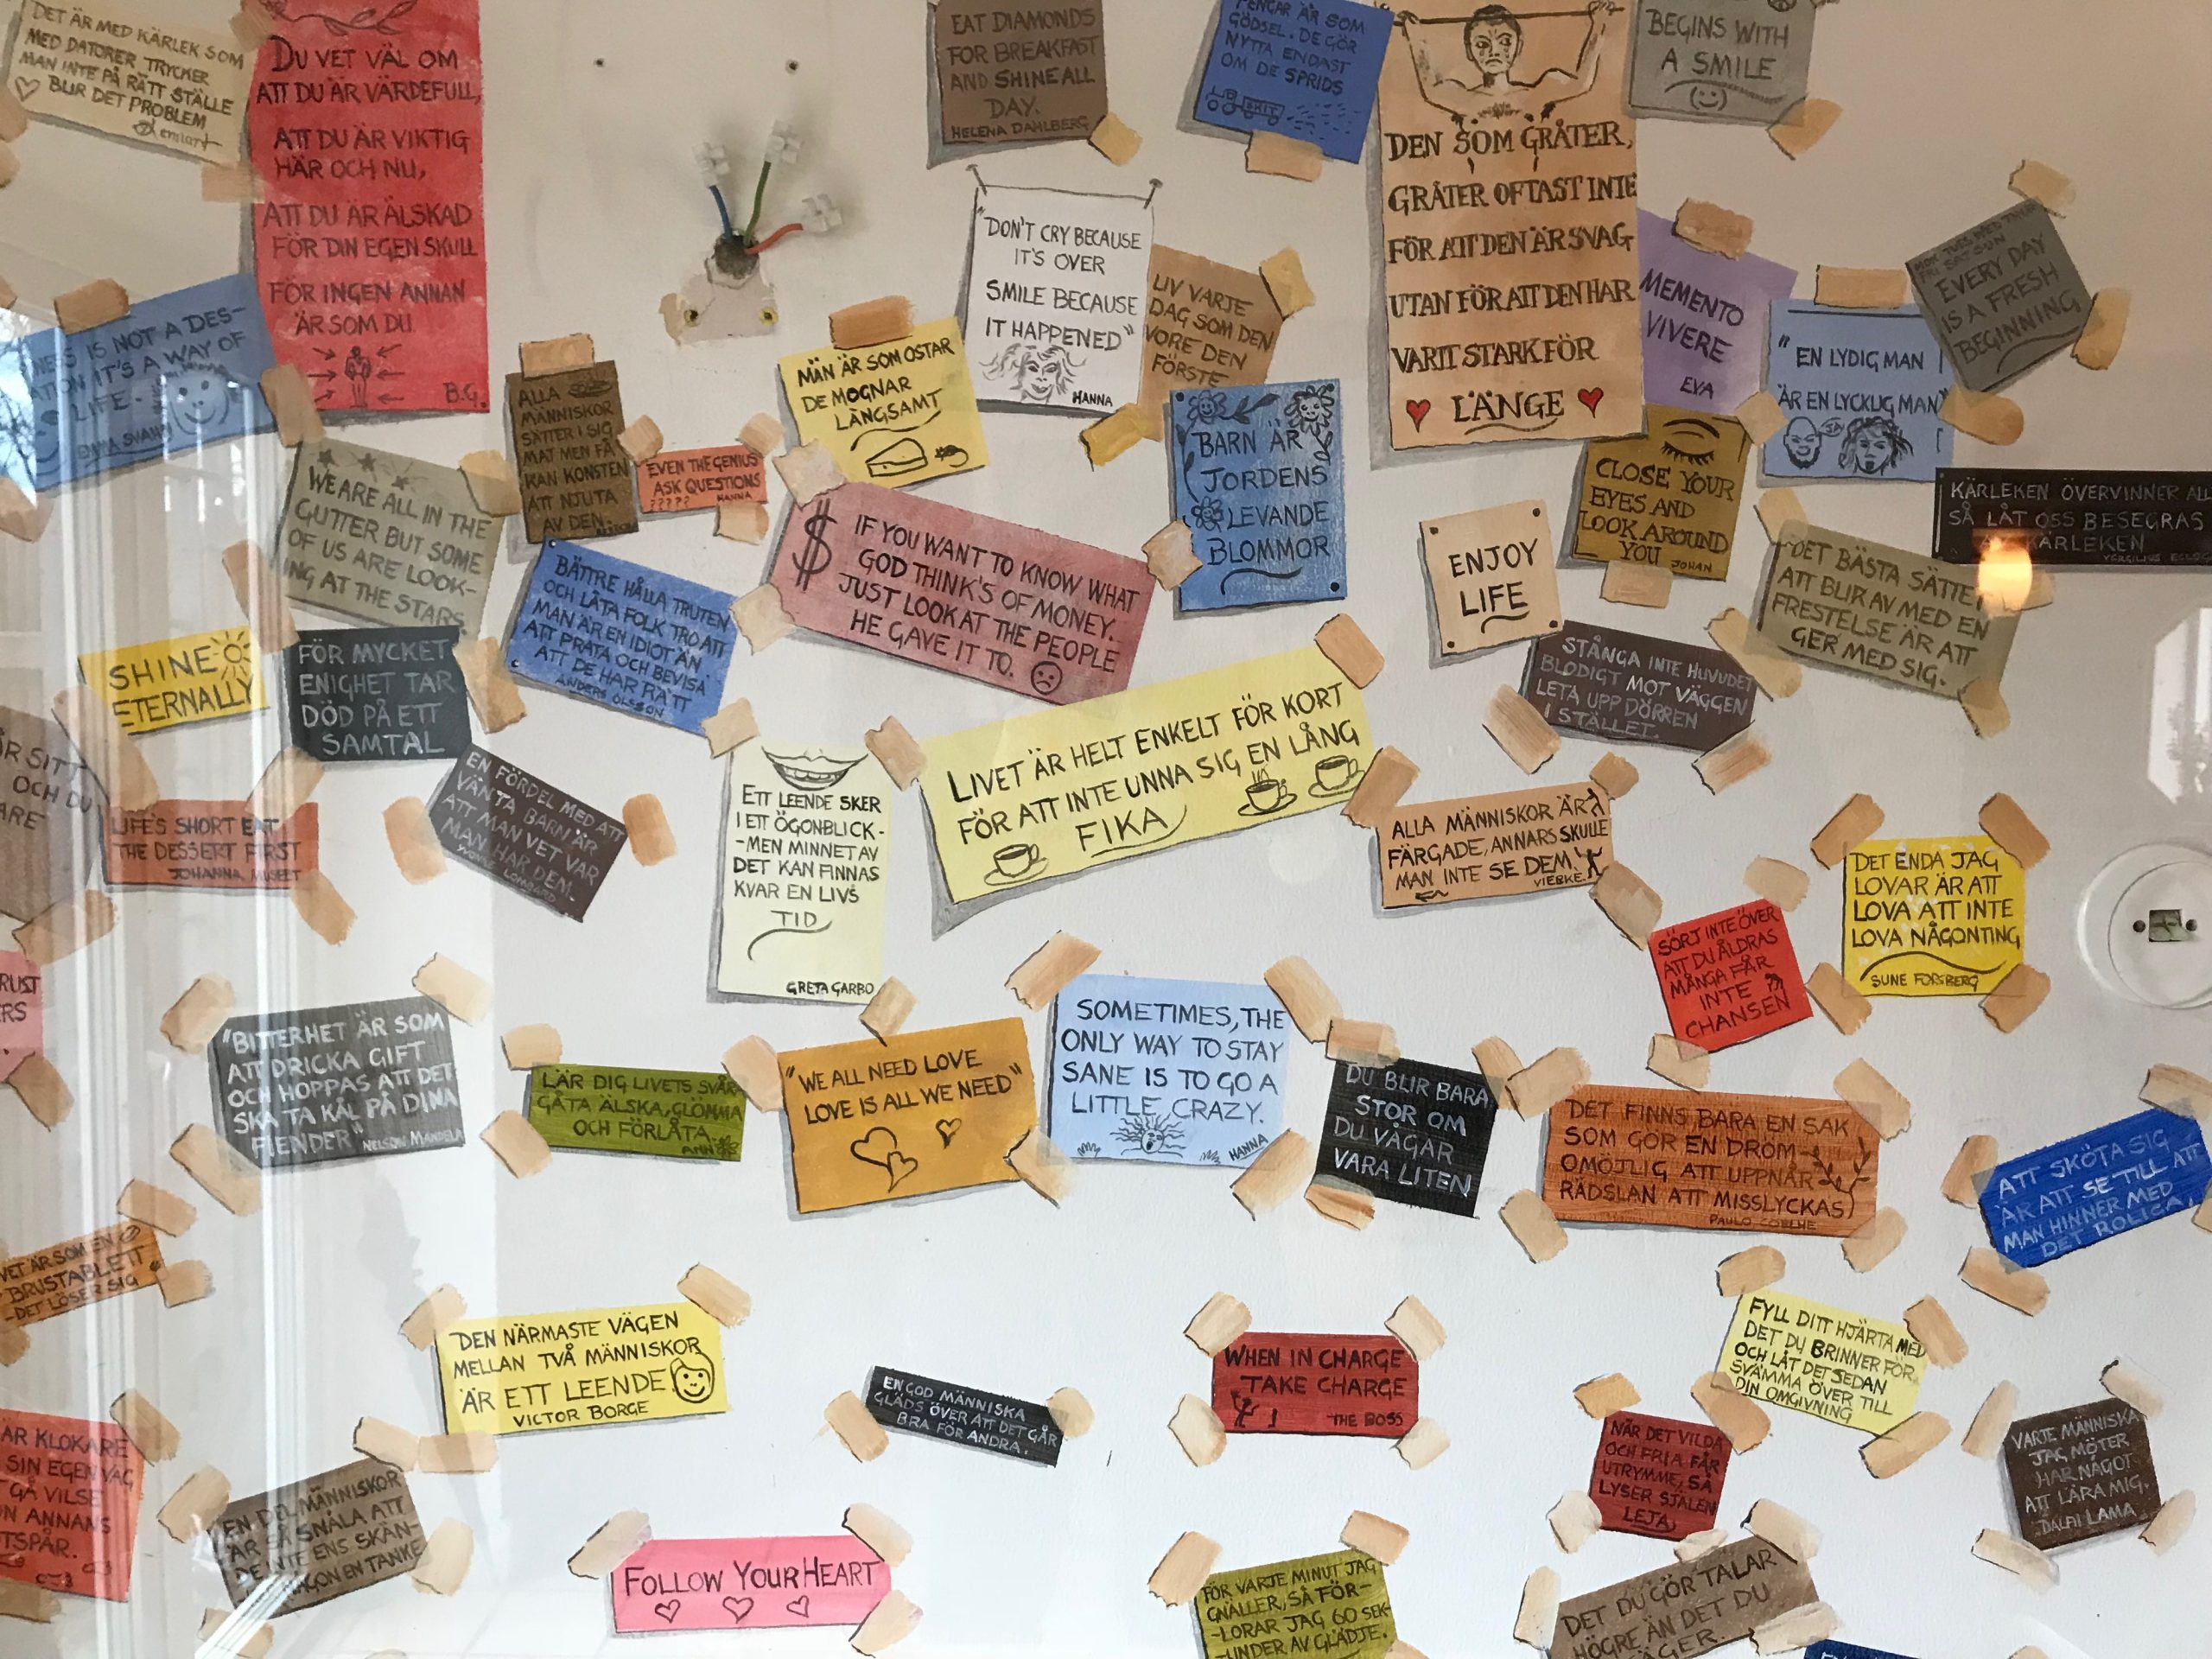 DET ÄR MED KÄRLEK SOM
MED DATORER TRYCKER
MAN INTE PÅ RÄTT STÄLLE
BLIR DET PROBLEM
DU VET VÄL OM
ATT DU ÄR VÄRDEFULL,
ATT DU ÄR VIKTIG
HÄR OCH NU,
ATT DU ÄR ÄLSKAD
FÖR DIN EGEN SKULL
FÖR INGEN ANNAN
ÄR SOM DU
B.G.
EAT DIAMONDS
FOR BREAKFAST
AND SHINE ALL
DAY.
HELENA DAHLBERG
PENGAR ÄR SOM
GÖDSEL. DE GÖR
NYTTA ENDAST
OM DE SPRIDS
SHIT
DEN SOM GRÅTER,
GRÅTER OFTAST INTE
FÖR ATT DEN ÄR SVAG
UTAN FÖR ATT DEN HAR
VARIT STARK FÖR
LÄNGE
BEGINS WITH
A SMILE
"DON'T CRY BECAUSE
IT'S OVER
SMILE BECAUSE
IT HAPPENED"
HANNA
LIV VARJE
DAG SOM DEN
VORE DEN
FÖRSTE
MEMENTO
VIVERE
EVA
"EN LYDIG MAN
ÄR EN LYCKLIG MAN"
JA
EVERY DAY
IS A FRESH
BEGINNING
NESS IS NOT A DES-
ATION IT'S A WAY OF
LIFE.
EMMA SVAHN
ALLA
MÄNNISKOR
SÄTTER I SIG
MAT MEN FÅ
KAN KONSTEN
ATT NJUTA
AV DEN.
EVEN THE GENIUS
ASK QUESTIONS
?????
HANNA
MÄN ÄR SOM OSTAR
DE MOGNAR
LÅNGSAMT
BARN ÄR
JORDENS
LEVANDE
BLOMMOR
CLOSE YOUR
EYES AND
LOOK AROUND
YOU
JOHAN
KÄRLEKEN ÖVERVINNER ALL
SÅ LÅT OSS BESEGRAS
AV KÄRLEKEN
WE ARE ALL IN THE
GUTTER BUT SOME
OF US ARE LOOK-
ING AT THE STARS.
BÄTTRE HÅLLA TRUTEN
OCH LÅTA FOLK TRO ATT
MAN ÄR EN IDIOT ÄN
ATT PRATA OCH BEVISA
ATT DE HAR RÄTT
ANDERS OLSSON
$ IF YOU WANT TO KNOW WHAT
GOD THINK'S OF MONEY.
JUST LOOK AT THE PEOPLE
HE GAVE IT TO.
ENJOY
LIFE
DET BÄSTA SÄTTET
ATT BLIR AV MED EN
FRESTELSE ÄR ATT
GER MED SIG.
SHINE
ETERNALLY
FÖR MYCKET
ENIGHET TAR
DÖD PÅ ETT
SAMTAL
STÅNGA INTE HUVUDET
BLODIGT MOT VÄGGEN
LETA UPP DÖRREN
I STÄLLET.
ÄR SITT
OCH DU
ARE
LIFE'S SHORT EAT
THE DESSERT FIRST
JOHANNA, MUSEET
EN FÖRDEL MED ATT
VÄNTA BARN ÄR
ATT MAN VET VAR
MAN HAR DEM.
ETT LEENDE SKER
I ETT ÖGONBLICK-
-MEN MINNET AV
DET KAN FINNAS
KVAR EN LIVS
TID
GRETA GARBO
LIVET ÄR HELT ENKELT FÖR KORT
FÖR ATT INTE UNNA SIG EN LÅNG
FIKA
ALLA MÄNNISKOR ÄR
FÄRGADE, ANNARS SKULLE
MAN INTE SE DEM.
VIEBKE.
SÖRJ INTE ÖVER
ATT DU ÅLDRAS
MÅNGA FÅR
INTE
CHANSEN
DET ENDA JAG
LOVAR ÄR ATT
LOVA ATT INTE
LOVA NÅGONTING
SUNE FORSBERG
RUST
RS
"BITTERHET ÄR SOM
ATT DRICKA GIFT
OCH HOPPAS ATT DET
SKA TA KÅL PÅ DINA
FIENDER"
NELSON MANDELA
LÄR DIG LIVETS SVÅR
GÅTA ÄLSKA, GLÖMMA
OCH FÖRLÅTA.
ANN
"WE ALL NEED LOVE
LOVE IS ALL WE NEED"
SOMETIMES, THE
ONLY WAY TO STAY
SANE IS TO GO A
LITTLE CRAZY.
HANNA
DU BLIR BARA
STOR OM
DU VÅGAR
VARA LITEN
DET FINNS BARA EN SAK
SOM GÖR EN DRÖM
OMÖJLIG ATT UPPNÅ
RÄDSLAN ATT MISSLYCKAS
PAULO COELHE
ATT SKÖTA SIG
ÄR ATT SE TILL ATT
MAN HINNER MED
DET ROLIGA.
VET ÄR SOM EN
BRUSTABLETT
-DET LÖSER SIG
DEN NÄRMASTE VÄGEN
MELLAN TVÅ MÄNNISKOR
ÄR ETT LEENDE
VICTOR BORGE
EN GOD MÄNNISKA
GLÄDS ÖVER ATT DET GÅR
BRA FÖR ANDRA.
WHEN IN CHARGE
TAKE CHARGE
THE BOSS
FYLL DITT HJÄRTA MED
DET DU BRINNER FÖR
OCH LÅT DET SEDAN
SVÄMMA ÖVER TILL
DIN OMGIVNING
NÄR DET VILDA
OCH FRIA FÅR
UTRYMME, SÅ
LYSER SJÄLEN
LEJA
VARJE MÄNNISKA
JAG MÖTER
HAR NÅGOT
ATT LÄRA MIG.
DALAI LAMA
ÄR KLOKARE
SIN EGEN VÄG
GÅ VILSE
N ANNANS
TSPÅR.
EN DEL MÄNNISKOR
ÄR SÅ SNÅLA ATT
DE INTE ENS SKÄN-
NÅGON EN TANKE
FOLLOW YOUR HEART
FÖR VARJE MINUT JAG
GNÄLLER, SÅ FÖR-
-LORAR JAG 60 SEK-
-UNDER AV GLÄDJE.
DET DU GÖR TALAR
HÖGRE ÄN DET DU
SÄGER.